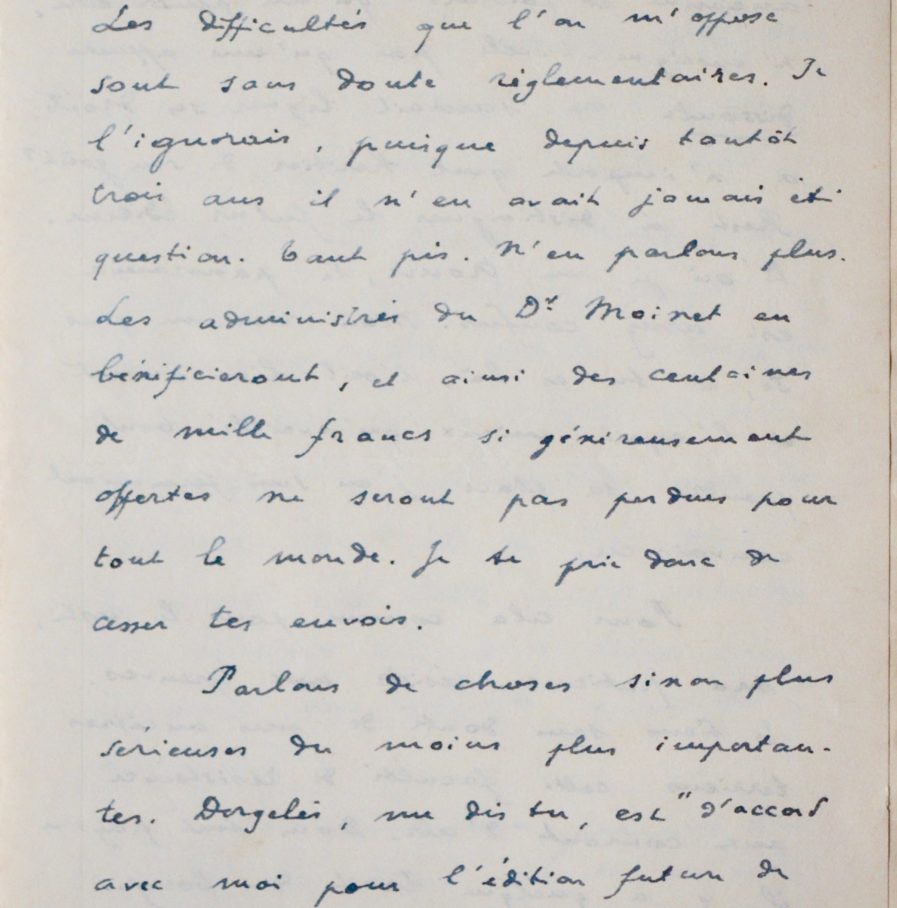 Les difficultés que l'on m'oppose
sont sans doute réglementaires. Je
l'ignorais, puisque depuis tantôt
trois ans il n'en avait jamais été
question. Tant pis. N'en parlons plus.
Les administrés du Dr Moinet en
bénéficieront, et ainsi des centaines
de mille francs si généreusement
offertes ne seront pas perdues pour
tout le monde. Je te prie donc de
cesser tes envois.
Parlons de choses sinon plus
sérieuses du moins plus importan-
tes. Dorgelès, me dis tu, est "d'accord
avec moi pour l'édition future de